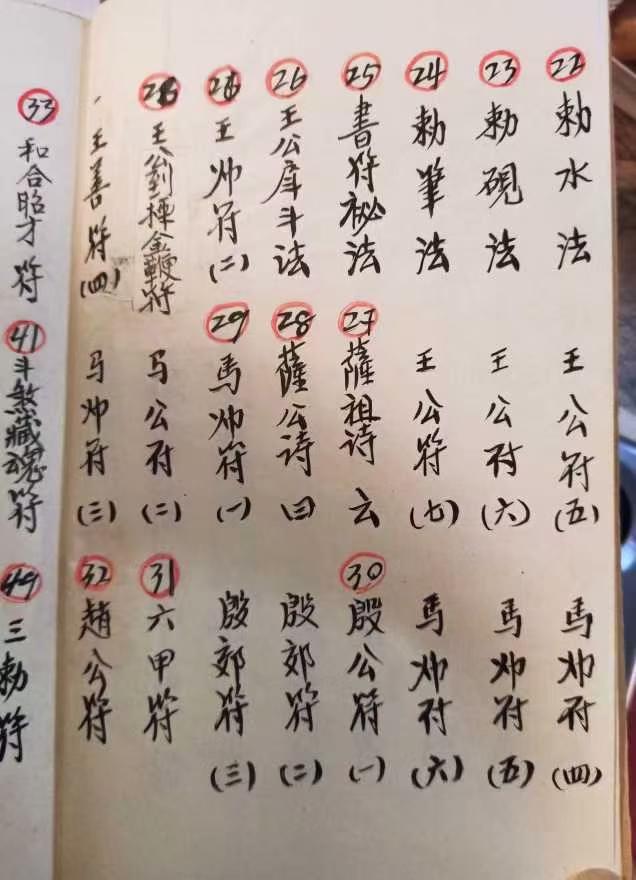 22 勅水法
23 勅硯法
24 勅筆法
25 書符祕法
26 王公岸斗法
王帅符(二)
王公劉種金鞭符
王善符(四)
王公符(五)
王公符(六)
王公符(七)
27 薩祖诗 云
28 薩公诗 三
29 馬帅符(一)
马公符(二)
马帅符(三)
馬帅符(四)
馬帅符(五)
馬帅符(六)
30 殷公符(一)
殷郊符(二)
殷郊符(三)
31 六甲符
32 趙公符
33 和合昭才符
41 斗煞藏魂符
49 三勅符